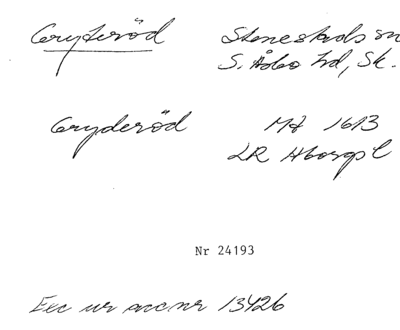 Gryteröd Stenestads sn
S. Åsbo hd, Sk.
Gryderöd Mt 1613
LR Aborgs l
Nr 24193
Exc ur acc nr 13426